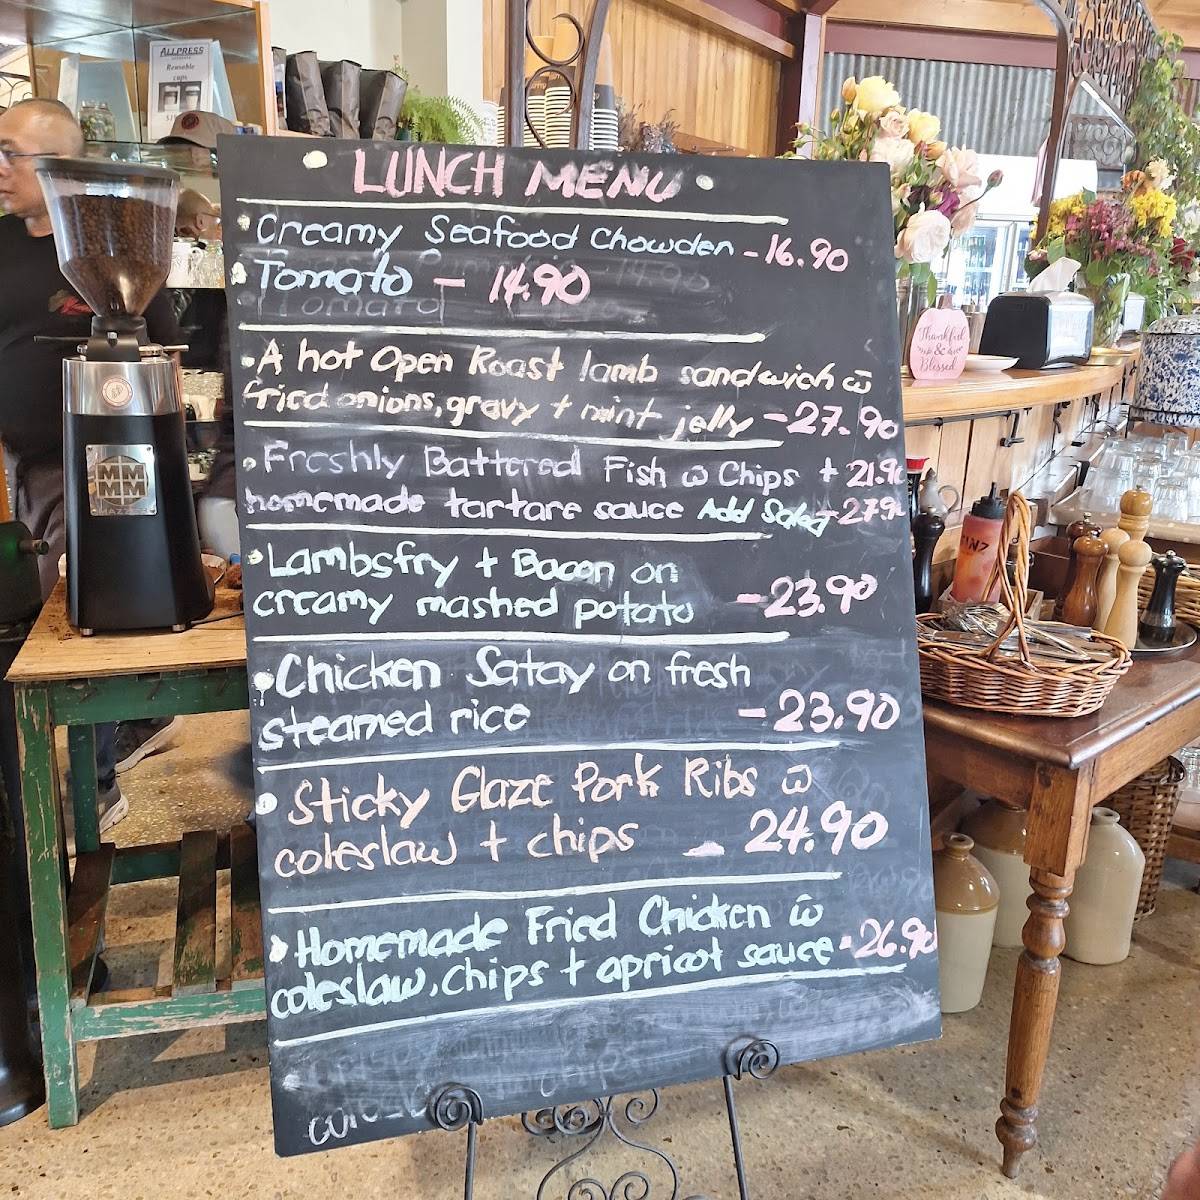 ALLPRESS
Reusable
cups
LUNCH MENU
• Creamy Seafood Chowder - 16.90
• Tomato - 14.90
• A hot Open Roast lamb sandwich w̄
fried onions, gravy + mint jelly - 27.90
• Freshly Battered Fish w̄ Chips + 21.90
homemade tartare sauce Add Salad - 27.90
• Lambsfry + Bacon on
creamy mashed potato - 23.90
• Chicken Satay on fresh
steamed rice - 23.90
• Sticky Glaze Pork Ribs w̄
coleslaw + chips - 24.90
• Homemade Fried Chicken w̄
coleslaw, chips + apricot sauce - 26.90
Thankful
& 
Blessed